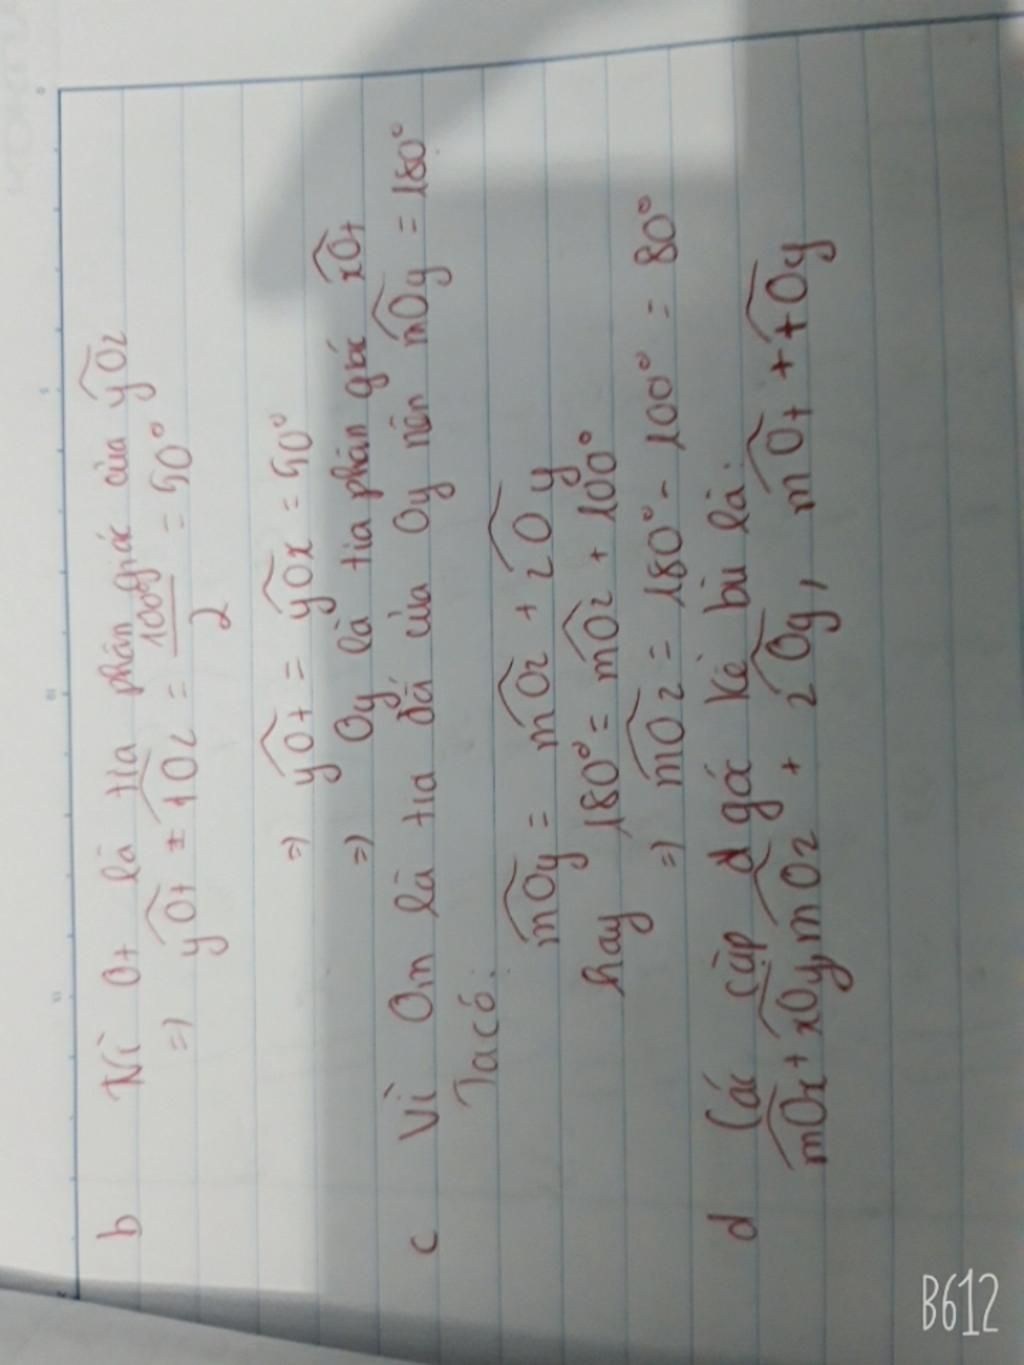 b Vì Ot là tia phân giác của yOz
=) yOt = tOz = 100°/2 = 50°
=) yOt = yOx = 50°
=) Oy là tia phân giác xOt
c Vì Om là tia đối của Oy nên mOy = 180°
Ta có:
mOy = mOz + zOy
hay 180° = mOz + 100°
=) mOz = 180° - 100° = 80°
d Các cặp góc kề bù là:
mOx + xOy, mOz + zOy, mOt + tOy
B612